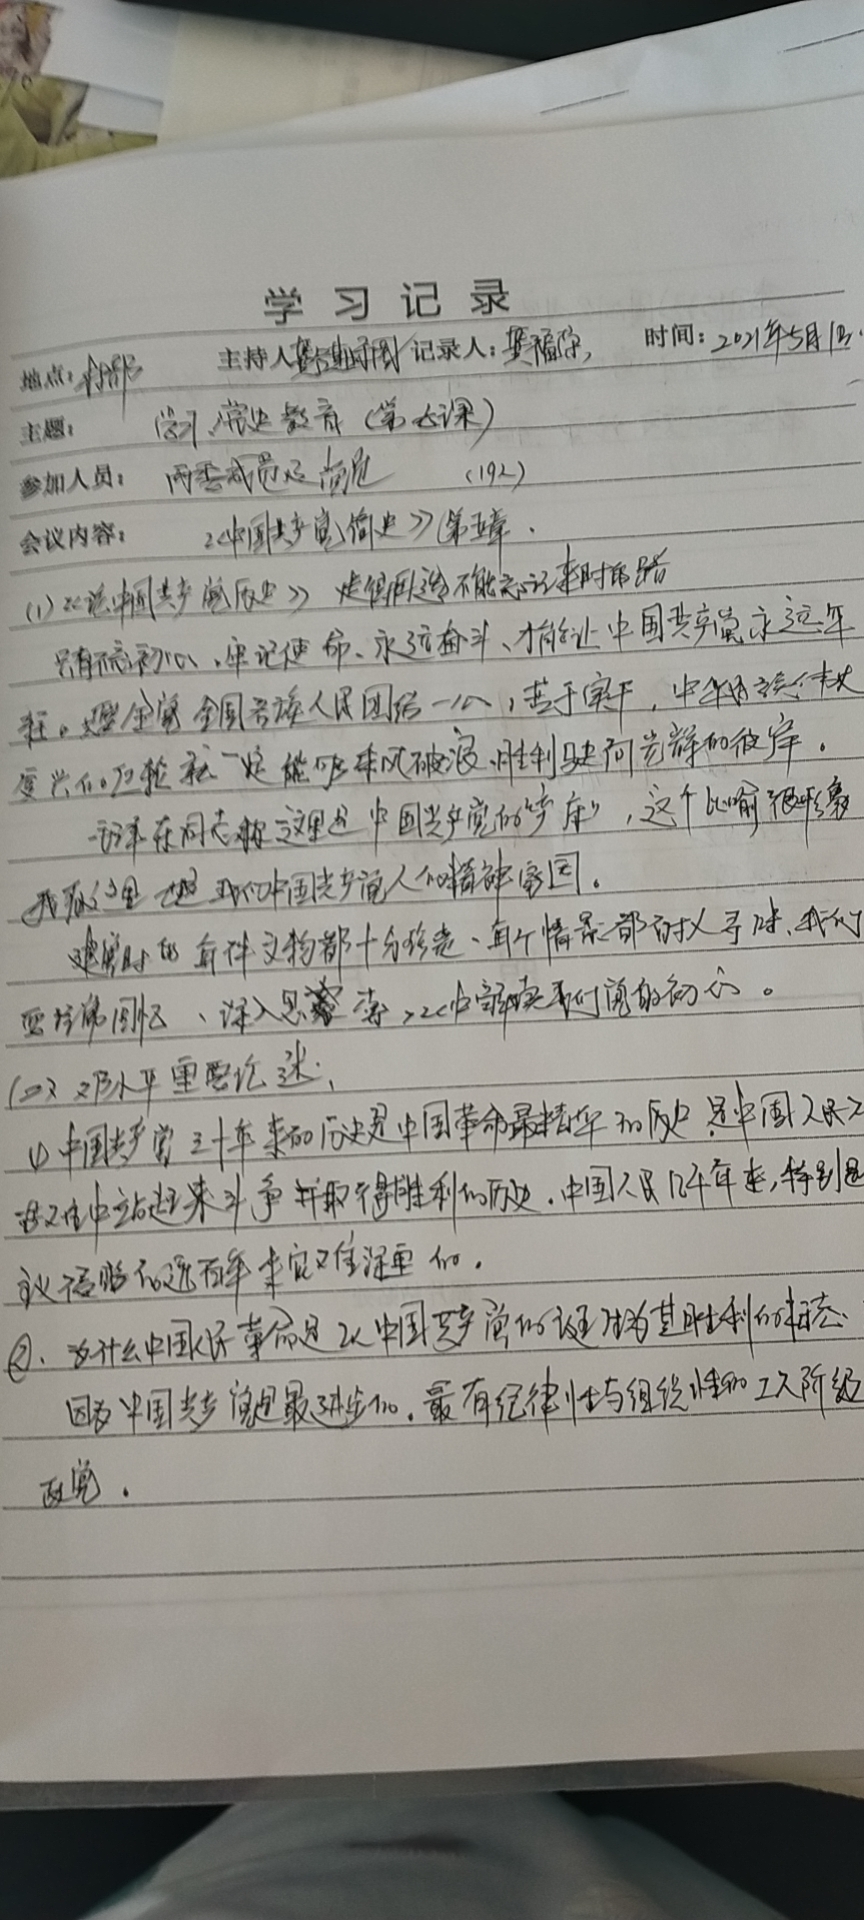 学习记录
地点：村部 主持人 记录人：龚福 时间：2021年5月1日.
主题： 学习党史教育（第七课）
参加人员： 两委成员及党员 （192）
会议内容： 《中国共产党简史》第五章.
(1)《论中国共产党历史》 走得再远不能忘记来时的路
只有不忘初心、牢记使命、永远奋斗、才能让中国共产党永远年
轻。全党全国各族人民团结一心，苦于实干，中华民族伟大
复兴的巨轮就一定能够乘风破浪、胜利驶向光辉的彼岸。
毛泽东同志称这里是中国共产党的"产床"，这个比喻很形象
我看这里也是我们中国共产党人的精神家园。
建党时的每件文物都十分珍贵、每个情景都耐人寻味、我们
要经常回忆、深入思 从中解读我们党的初心。
(二) 邓小平重要论述:
① 中国共产党三十年来的历史是中国革命最精华的历史 是中国人民从
中站起来斗争并取得胜利的历史. 中国人民几千年来,特别是
的近百年来 灾难深重的.
②. 为什么中国人民革命是以中国共产党的诞生为其胜利的标志
因为中国共产党是最进步的. 最有纪律性与组织性的工人阶级
政党.